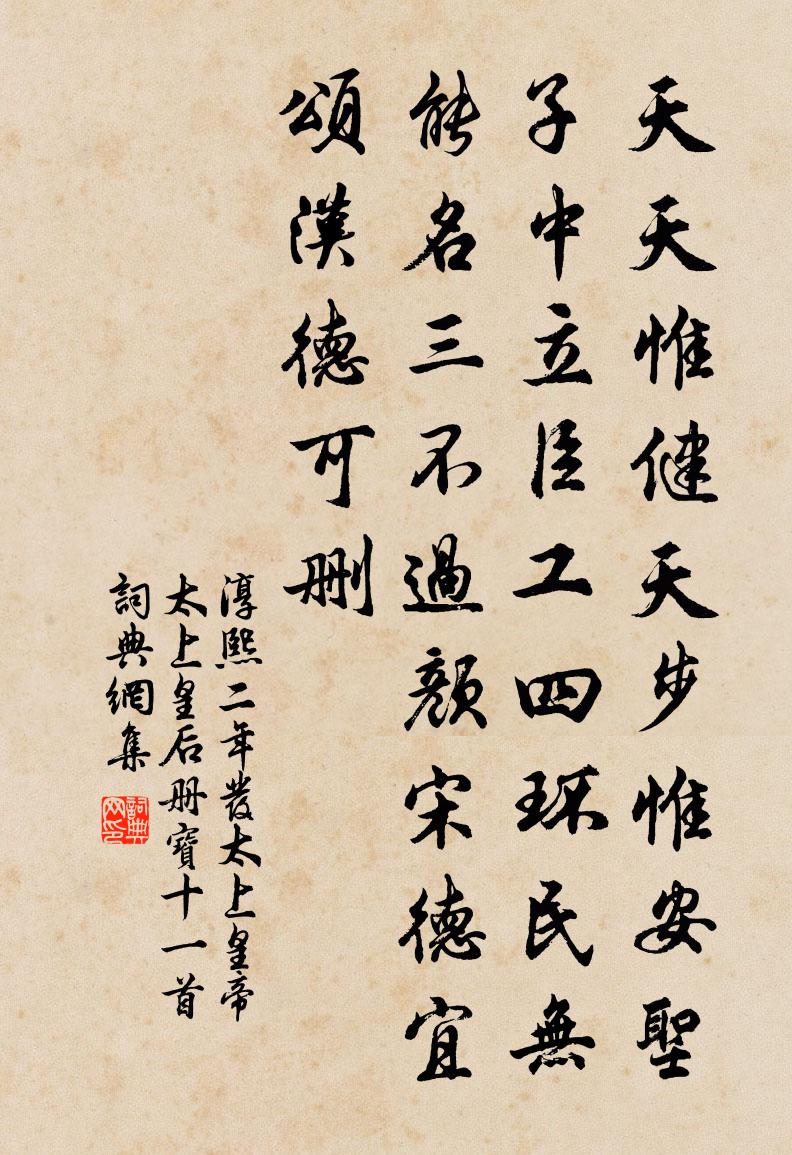 天天惟健天步惟安聖
子中立臣工四环民無
能名三不過顏宋德宜
頌漢德可删
淳熙二年發太上皇帝
太上皇后册寶十一首
詞典網集
詞典网印